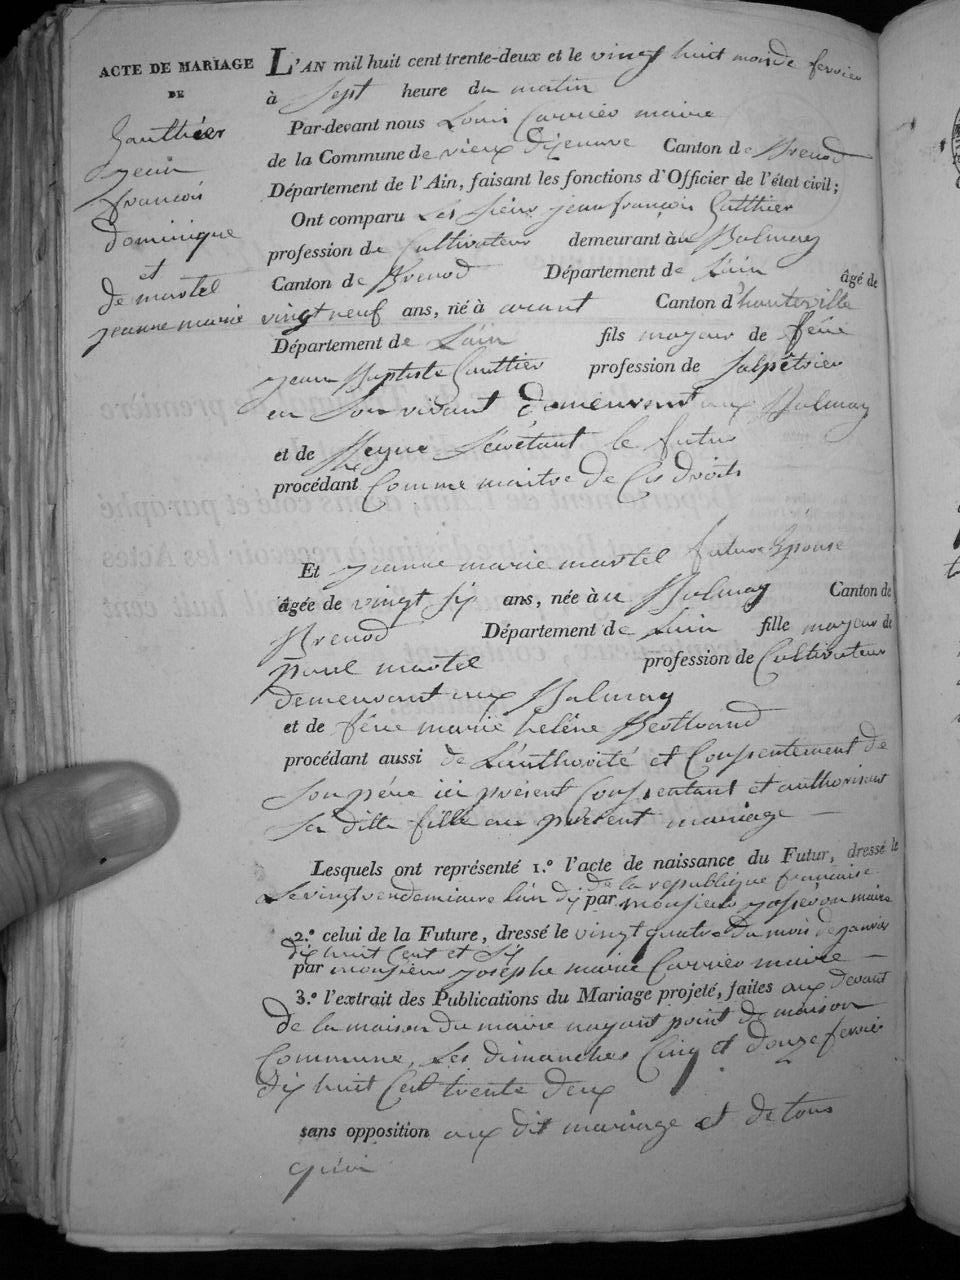 ACTE DE MARIAGE
DE
Gauthier
jean
françois
dominique
et
de martel
jeanne marie
L'AN mil huit cent trente-deux et le vingt huit mois de fevrier
à Sept heure du matin
Par-devant nous Louis Carrier maire
de la Commune de vieux d'izenave Canton de Brenod
Département de l'Ain, faisant les fonctions d'Officier de l'état civil;
Ont comparu Les Sieur jean françois Gutthier
profession de Cultivateur demeurant à au Balmay
Canton de Brenod Département de L'ain âgé de
vingt neuf ans, né à arant Canton d'hauteville
Département de L'ain fils mageur de feu
jean Baptiste Gauttier profession de Salpêtrier
en Son vivant demeurant aux Balmay
et de Reyne Secretant le futur
procédant Comme maitre de Ces droits
Et jeanne marie martel future Epouse
âgée de vingt six ans, née à au Balmay Canton de
Brenod Département de Lain fille mageur de
paul martel profession de Cultivateur
demeurant aux Balmay
et de feue marie helêne Berthrand
procédant aussi de L'authorité et Consentement de
Son père ici présent Consentant et authorisant
Sa ditte fille au present mariage
Lesquels ont représenté 1.° l'acte de naissance du Futur, dressé le
de la republique francaise
Le vingt vendemiaire L'an dix par monsieur maire
2.° celui de la Future, dressé le vingt quatre du mois de janvier
dix huit Cent et Six
par monsieur josephe marie Carrier maire
3.° l'extrait des Publications du Mariage projeté, faites aux devant
de la maison du maire nayant point de maison
Commune, Les dimanches Cinq et douze fevrier
dix huit Cent trente deux
sans opposition aux dit mariage et de tous